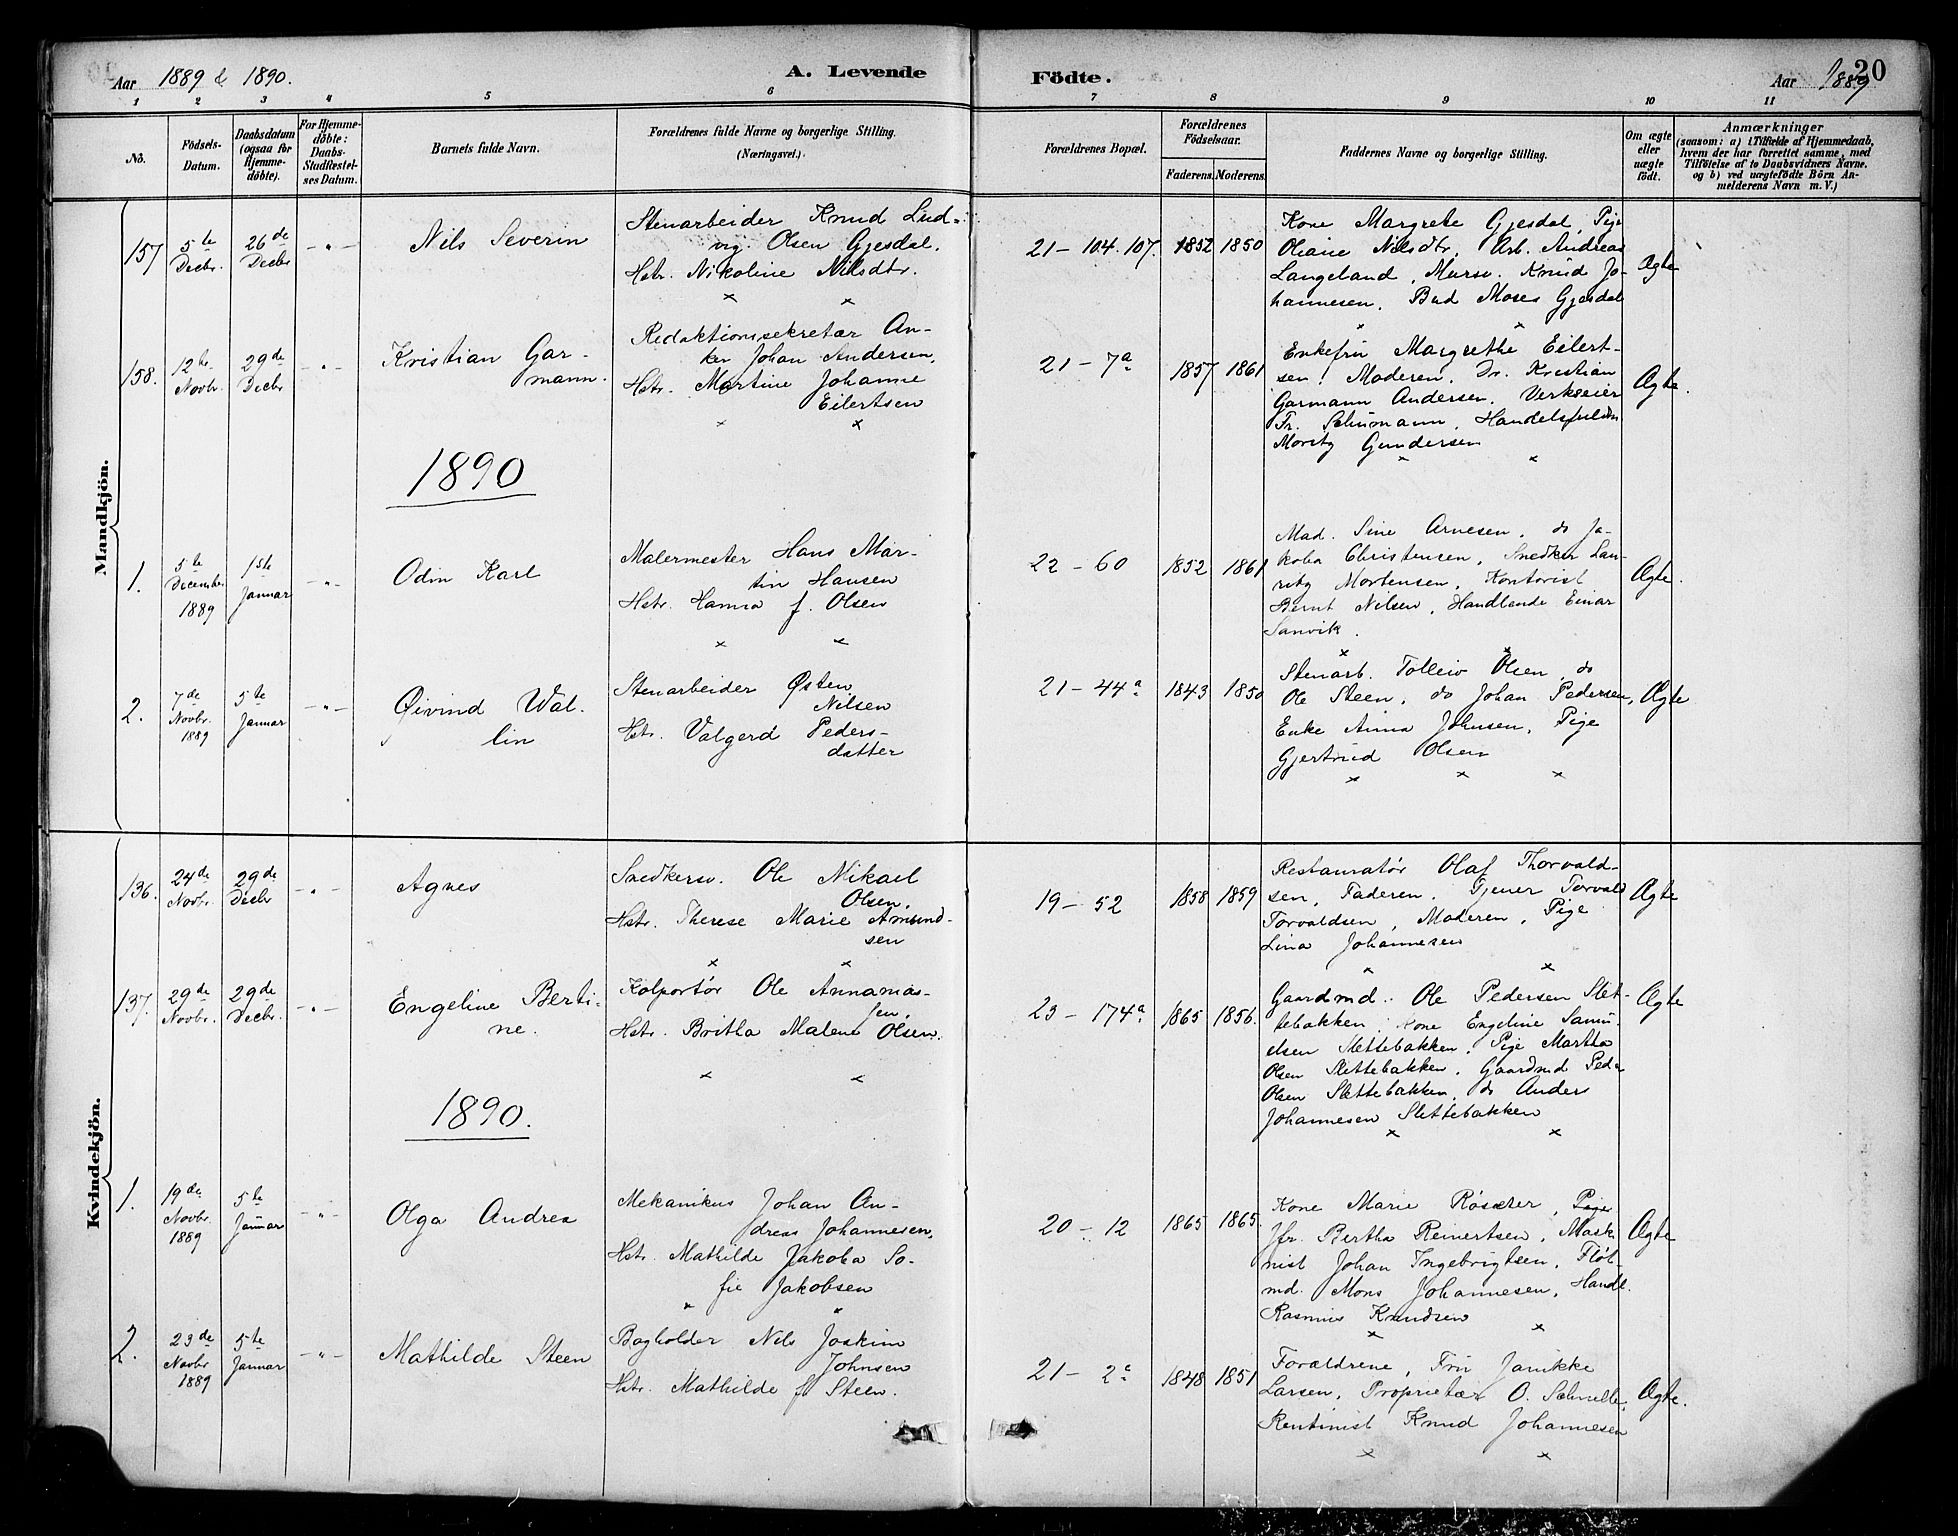 Aar 1889 & 1890.
A. Levende
Födte.
Aar 1889
20
1 2 3 4 5 6 7 8 9 10 11
Nô.
Födsels-Datum.
Daabsdatum (ogsaa for Hjemme-döbte).
For Hjemme-döbte: Daabs-Stadfæstel-ses Datum.
Barnets fulde Navn.
Forældrenes fulde Navne og borgerlige Stilling. (Næringsvei.)
Forældrenes Bopæl.
Forældrenes Födselsaar.
Faderens. Moderens.
Faddernes Navne og borgerlige Stilling.
Om ægte eller uægte födt.
Anmærkninger
(saasom: a) i Tilfælde af Hjemmedaab,
hvem der har forrettet samme, med
Tilföielse af to Daabsvidners Navne.
og b) ved uægtefödte Börn An-
melderens Navn m. V.)
Mandkjön.
157
5te Decbr.
26de Decbr
- " -
Nils Severin
Stenarbeider Knud Lud-
vig Olsen Gjesdal.
Hstr. Nikoline Nilsdtr.
21 - 104. 107.
1852
1850
Kone Margrete Gjesdal, Pige
Oliane Nilsdtr, Arb. Andreas
Langeland, Mursv. Knud Jo-
hannesen, Bud Moses Gjesdal
Ægte
158.
12te Novbr.
29de Decbr
- " -
Kristian Gar-
mann.
Redaktionssekretær An-
ker Johan Andersen,
Hstr. Martine Johanne
Eilertsen
21 - 7a
1857
1861
Enkefru Margrethe Eilert-
sen, Moderen, Dr. Kristian
Garmann Andersen, Verkseier
Fr. Schumann, Handelsfuldm
Moritz Gundersen
Ægte.
1890
1.
5te December 1889
1ste Januar
- " -
Odin Karl
Malermester Hans Mar-
tin Hansen
Hstr. Hanna f. Olsen
22 - 60
1852
1861
Mad. Sine Arnesen, do Ja-
koba Christensen, Snedker Lau-
ritz Mortensen, Kontorist
Bernt Nilsen, Handlende Einar
Sanvik.
Ægte.
2.
7de Novbr. 1889
5te Januar
- " -
Øivind Wal-
lin
Stenarbeider Østen
Nilsen
Hstr. Valgerd Peders-
datter
21 - 44a
1843
1850
Stenarb. Tolleiv Olsen, do
Ole Steen, do Johan Pedersen,
Enke Anna Johnsen, Pige
Gjertrud Olsen
Ægte
Kvindekjön.
136.
24de Novbr.
29de Decbr
- " -
Agnes
Snedkersv. Ole Mikael
Olsen,
Hstr. Therese Marie Amund-
sen
19 - 52
1858
1859
Restauratør Olaf Thorvald-
sen, Faderen, Tjener Torvald
Torvaldsen, Moderen, Pige
Lina Johannesen
Ægte
137.
29de Novbr.
29de Decbr.
- " -
Engeline Berti-
ne.
Kolportør Ole Annanias-
sen,
Hstr. Britha Malene Olsen.
23 - 174a
1865
1856.
Gaardmd. Ole Pedersen Slet-
tebakken, Kone Engeline Samu-
elsen Slettebakken, Pige Martha
Olsen Slettebakken, Gaardmd Peder
Olsen Slettebakken, do Anders
Johannesen Slettebakken
Ægte
1890.
1.
19de Novbr. 1889
5te Januar
- " -
Olga Andrea
Mekanikus Johan An-
dreas Johannesen,
Hstr. Mathilde Jakoba So-
fie Jakobsen
20 - 12
1865
1865.
Kone Marie Røsæter, Pige
Jfr. Bertha Reinertsen, Maski
nist Johan Ingebrigtsen, Fløt-
md. Mons Johannesen, Handl.
Rasmus Knudsen
Ægte
2.
23de Novbr 1889
5te Januar
- " -
Mathilde Steen
Bogholder Nils Joakim
Johnsen
Hstr. Mathilde f. Steen.
21 - 2c
1848
1851
Forældrene, Fru Janikke
Larsen, Proprietær O. Schnelle,
Rentinist Knud Johannesen
Ægte.